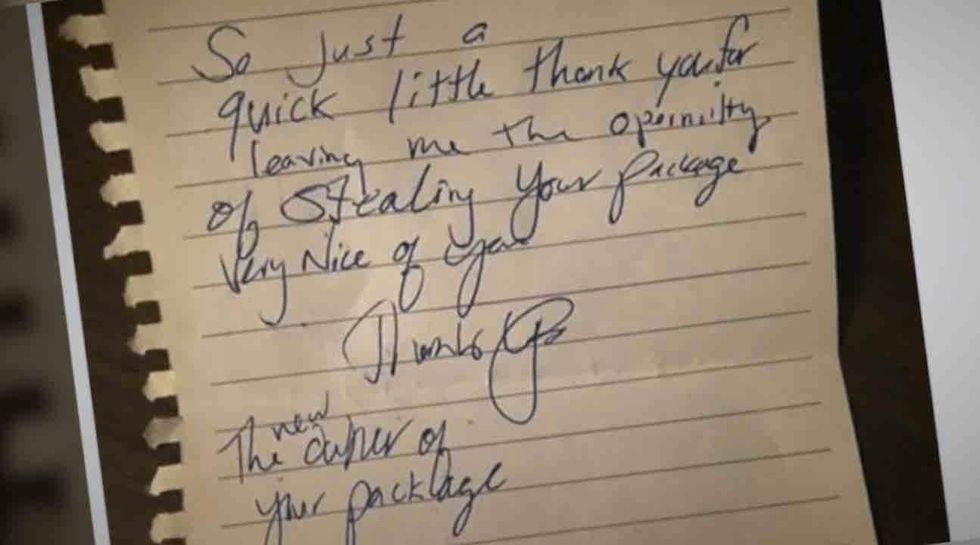 So Just a
quick little thank you for
leaving me the
of Stealing your package
Very Nice of you
Thanks
new
The owner of
your packlage